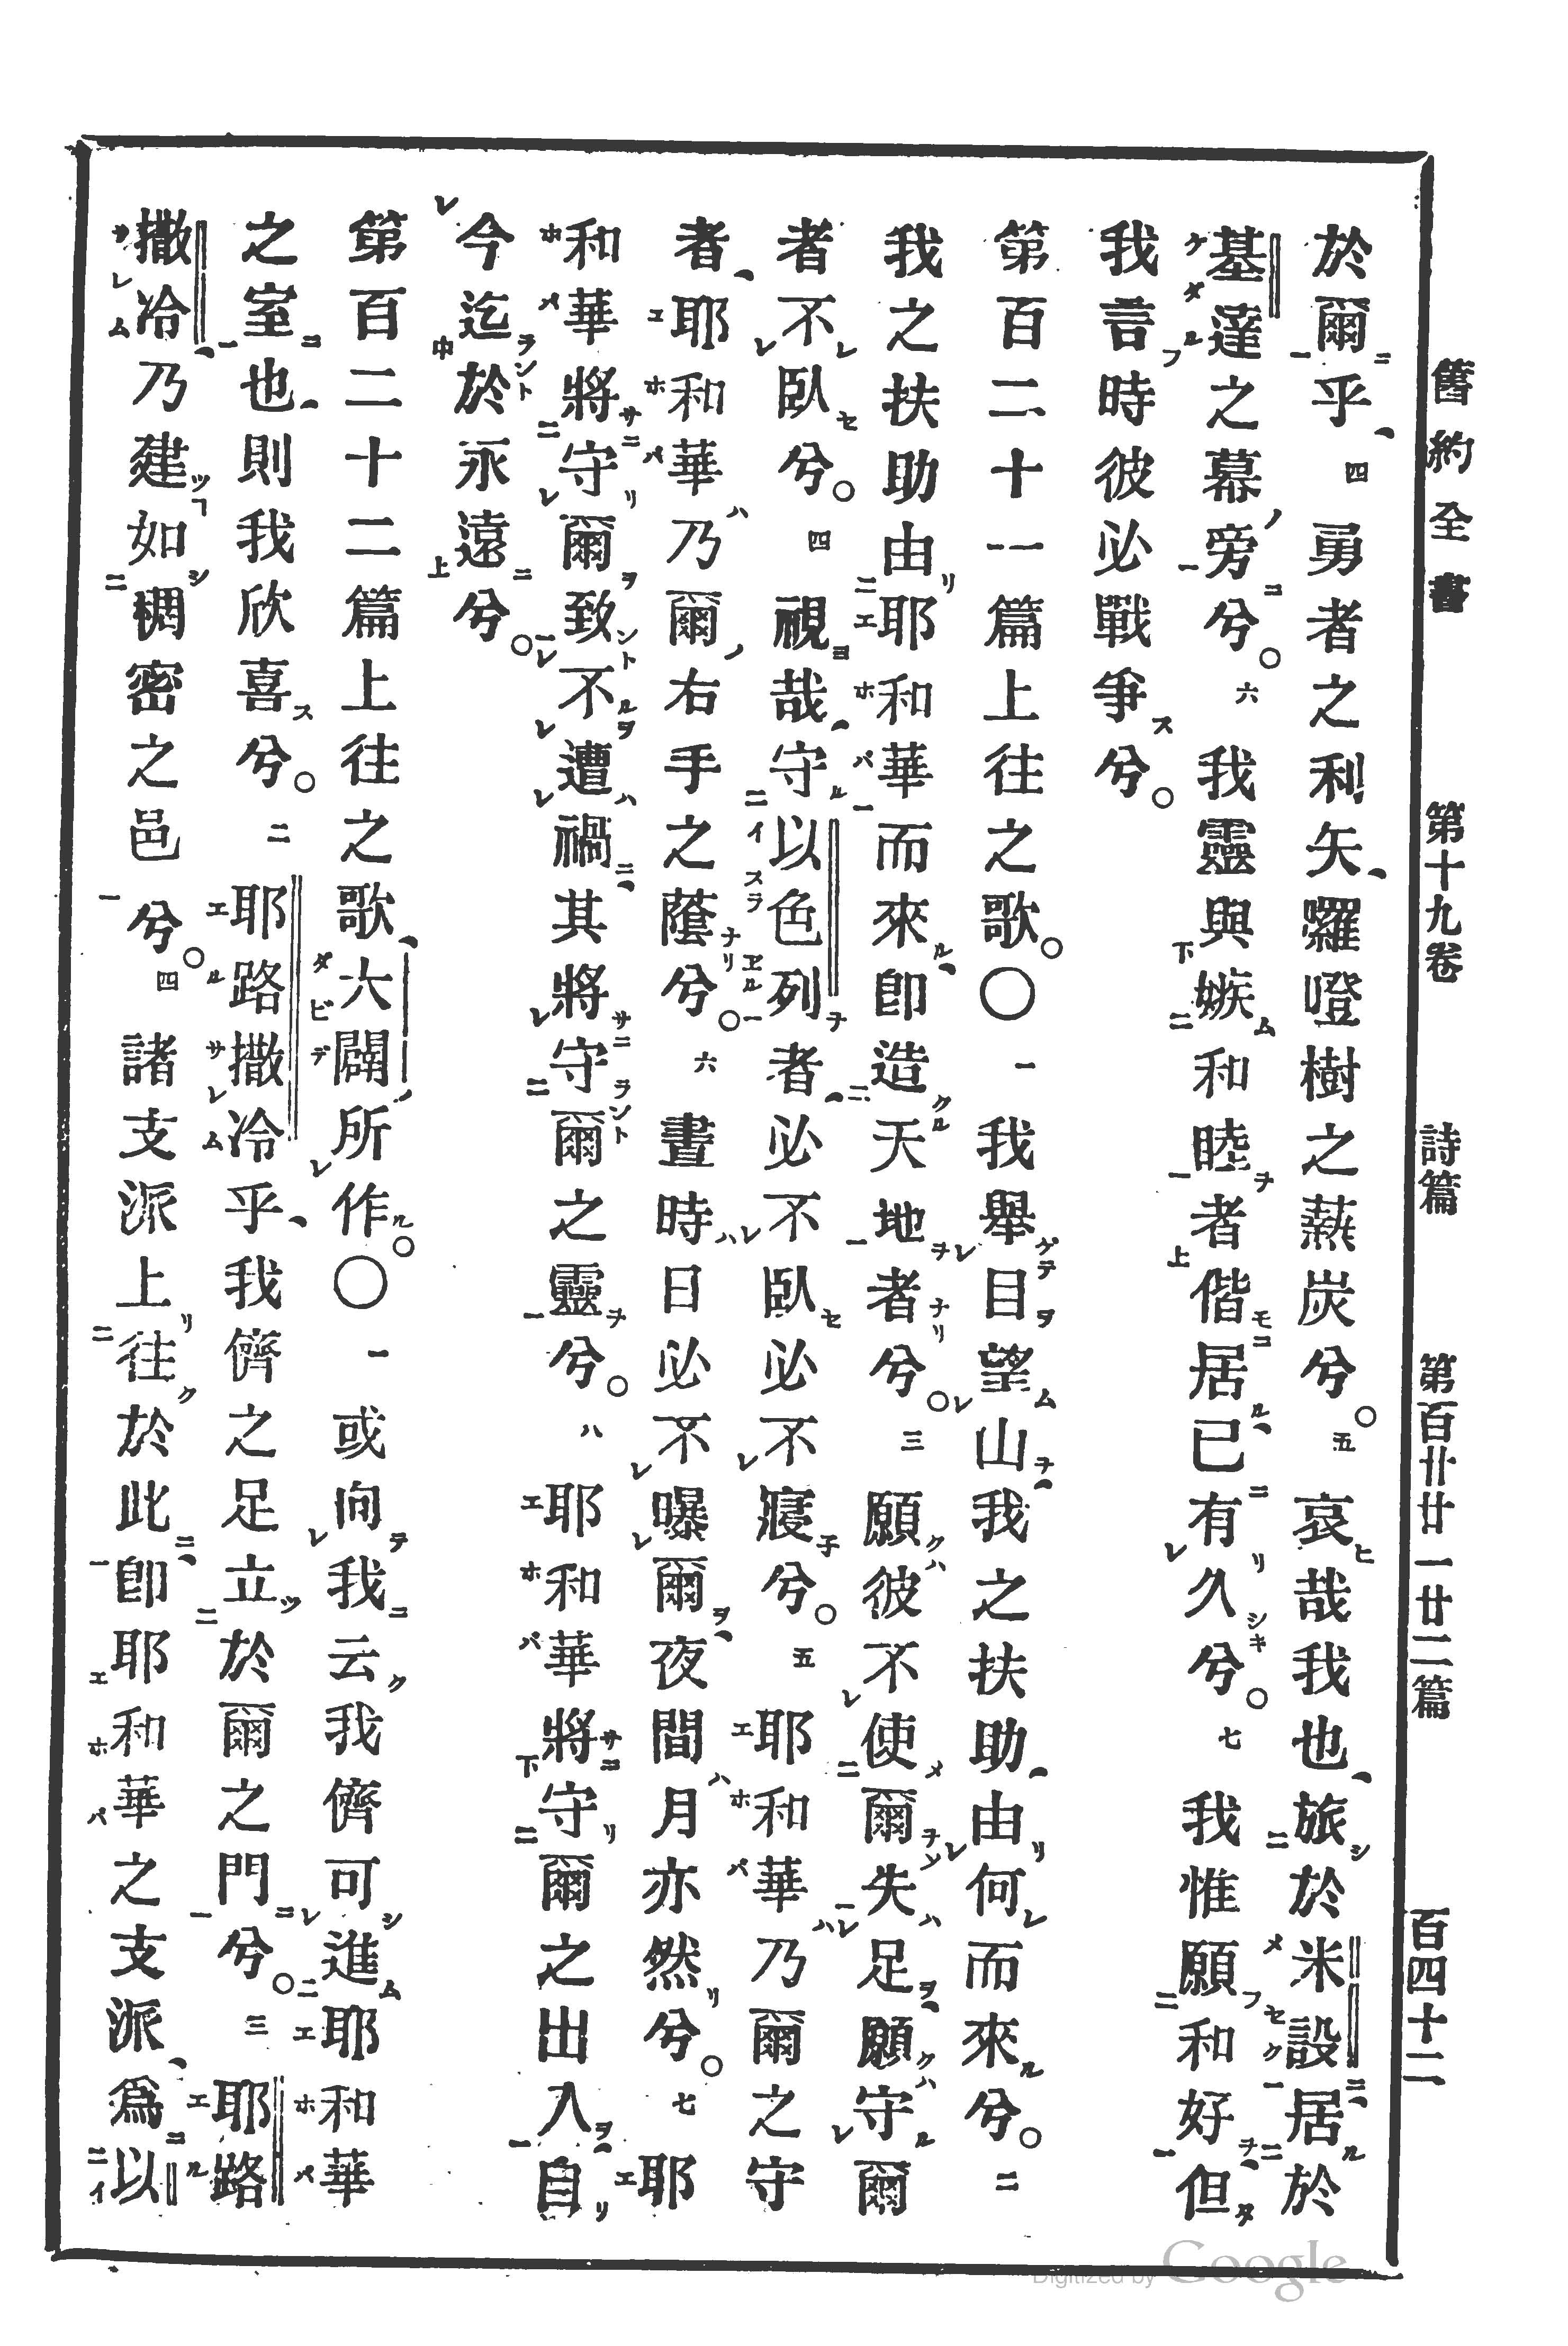 舊約全書 第十九卷 詩篇 第百廿廿一廿二篇 百四十二
於爾乎、四勇者之利矢、囉噔樹之爇炭兮。五哀哉我也、旅於米設、居於
基達之幕旁兮。六我靈與嫉和睦者偕居、已有久兮。七我惟願和好、但
我言時彼必戰爭兮。
第百二十一篇上往之歌。〇一我舉目望山、我之扶助、由何而來兮。二
我之扶助由耶和華而來、卽造天地者兮。三願彼不使爾失足、願守爾
者不臥兮。四視哉、守以色列者、必不臥必不寢兮。五耶和華乃爾之守
者、耶和華乃爾右手之蔭兮。六晝時日必不曝爾、夜間月亦然兮。七耶
和華將守爾致不遭禍、其將守爾之靈兮。八耶和華將守爾之出入、自
今迄於永遠兮。
第百二十二篇上往之歌、大闢所作。〇一或向我云我儕可進耶和華
之室也、則我欣喜兮。二耶路撒冷乎、我儕之足立於爾之門兮。三耶路
撒冷、乃建如稠密之邑兮。四諸支派上往於此、卽耶和華之支派、爲以
Digitized by Google